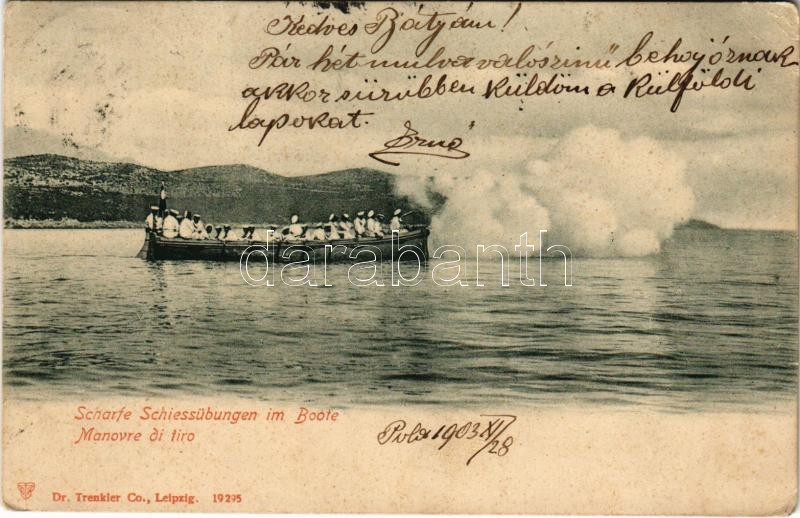 Kedves Bátyám!
Pár hét mulva valószinű behajóznak
akkor sürübben küldöm a külföldi
lapokat.
Ernő
darabanth
Scharfe Schiessübungen im Boote
Manovre di tiro
Pola 1903 XI/28
Dr. Trenkler Co., Leipzig. 19295